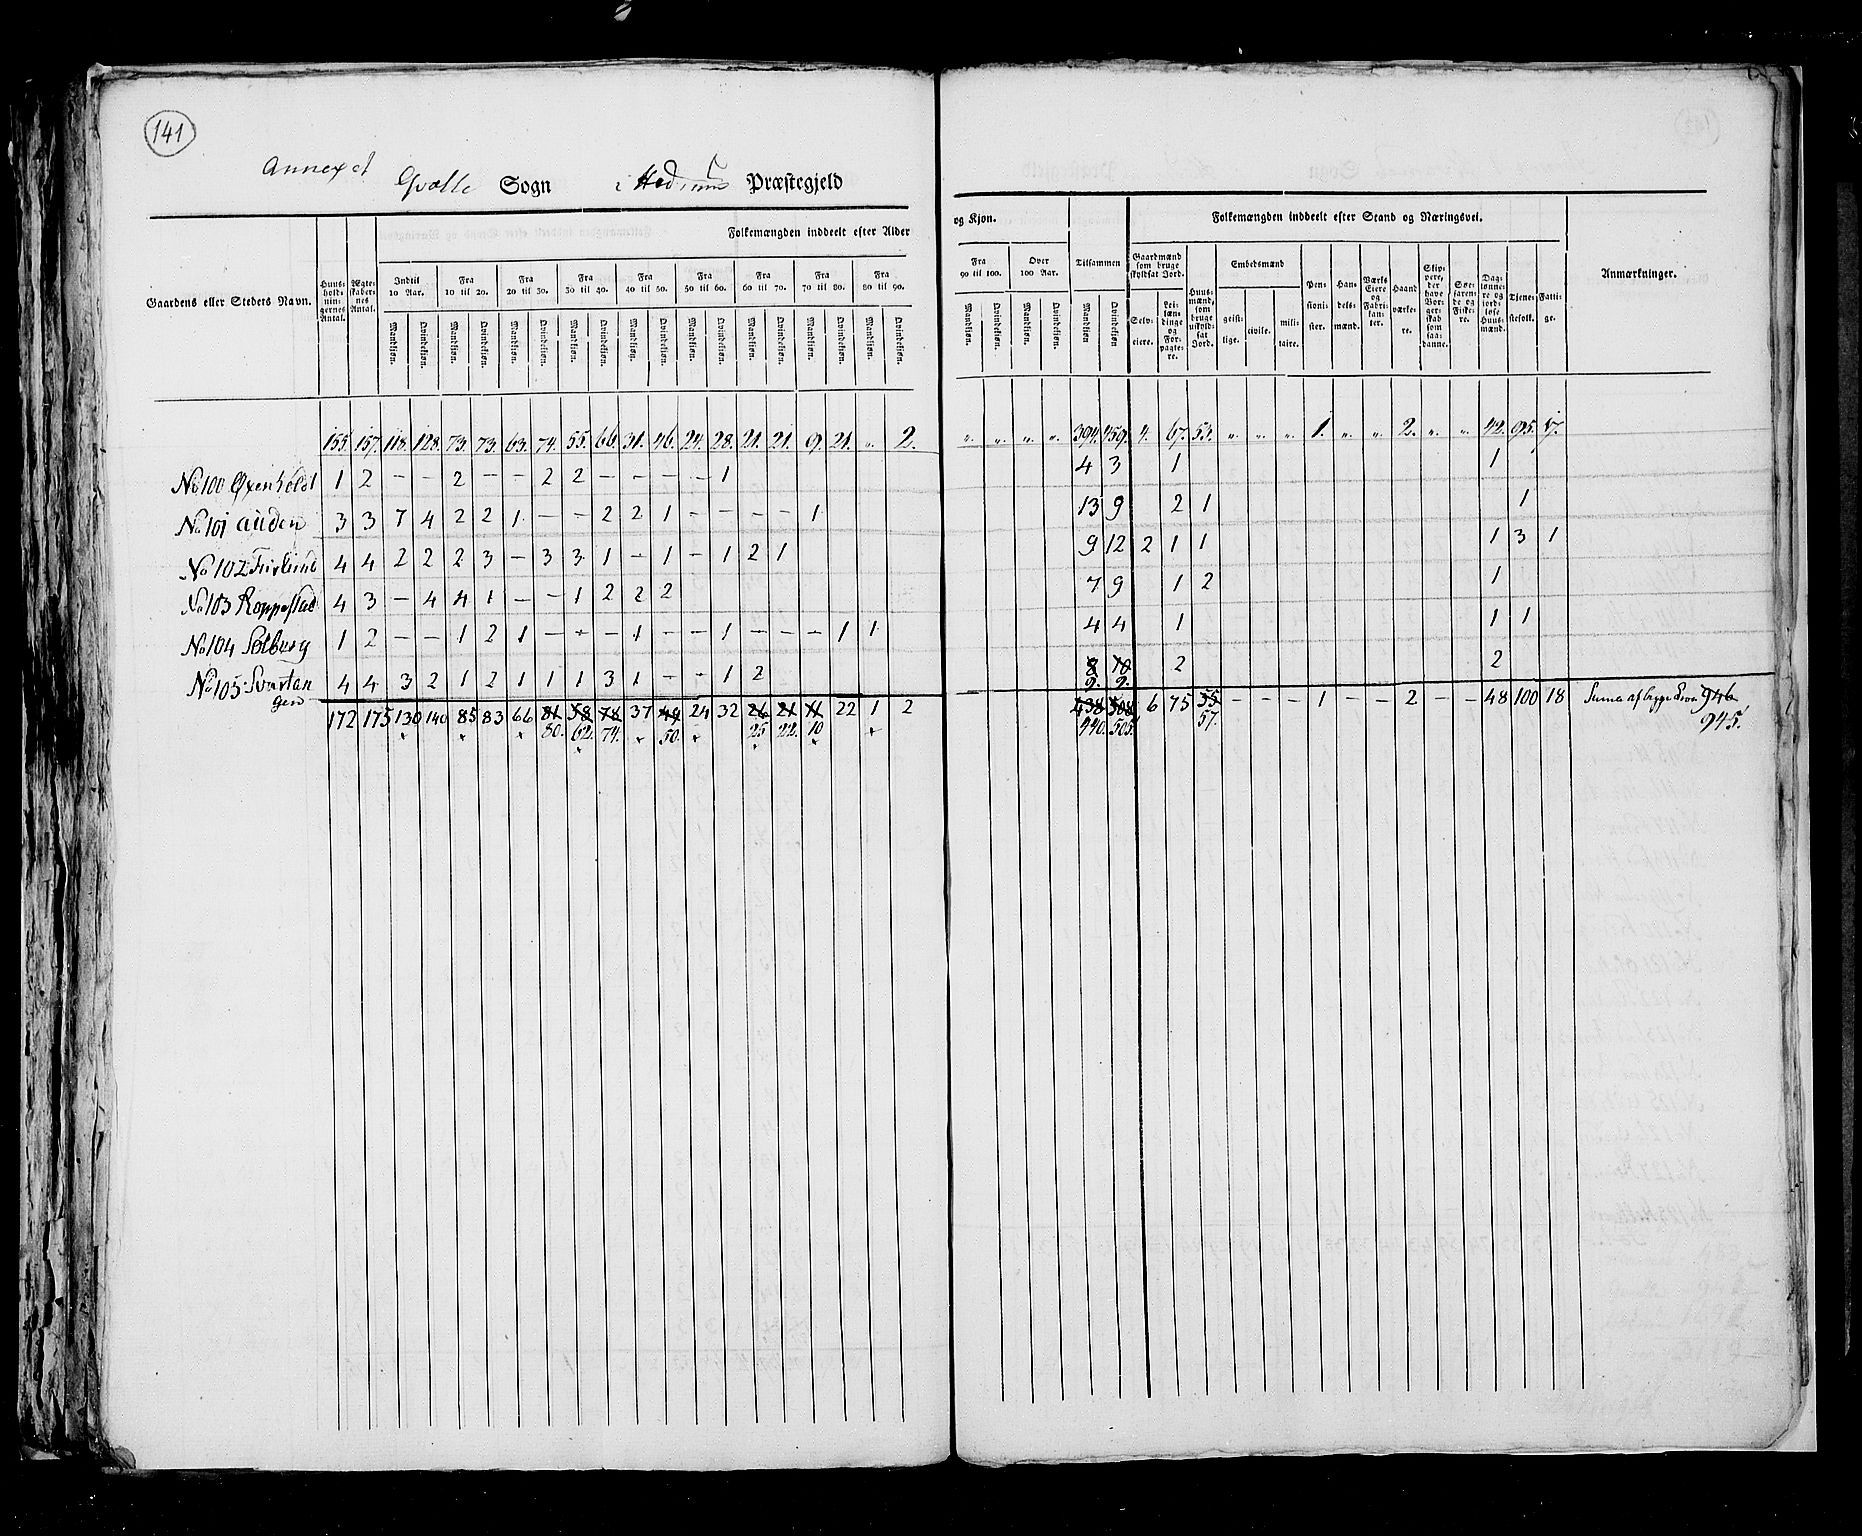 141
Annexet
Qvelle Sogn i Hedrum Præstegjeld
Gaardens eller Stedets Navn.
Huus-holdningernes Antal.
Ægteskabernes Antal.
Folkemængden inddeelt efter Alder
og Kjøn.
Indtil 10 Aar.
Fra 10 til 20.
Fra 20 til 30.
Fra 30 til 40.
Fra 40 til 50.
Fra 50 til 60.
Fra 60 til 70.
Fra 70 til 80.
Fra 80 til 90.
Fra 90 til 100.
Over 100 Aar.
Tilsammen
Mandkjøn. Qvindekjøn.
Folkemængden inddeelt efter Stand og Næringsvei.
Gaardmænd som bruge skyldsat Jord.
Selveiere.
Leilændinge og Forpagtere.
Huusmænd, som bruge uskyldsat Jord.
Embedsmænd
geistlige. civile. militaire.
Pensionister.
Handelsmænd.
Værks Eiere og Fabrikanter.
Haandværkere.
Skippere, der have Borgerskab som saadanne.
Søefarende og Fiskere.
Daglønnere og jordløse Huusmænd.
Tjenestefolk.
Fattige.
Anmærkninger.
155. 157. 118. 128. 73. 73. 63. 74. 55. 66. 31. 46. 24. 28. 21. 21. 9. 21. „ 2. „ „ „ „ 394. 459. 4. 67. 51. „ „ „ 1. „ „ 2. „ „ 42. 95. 17.
No 100 Øxenholdt 1 2 – – 2 – – 2 2 – – – – 1 4 3 1 1
No 101 Auden 3 3 7 4 2 2 1 – – 2 2 1 – – – – 1 13 9 2 1 1
No 102 4 4 2 2 2 3 – 3 3 1 – 1 – 1 2 1 9 12 2 1 1 1 3 1
No 103 Roppestad 4 3 – 4 4 1 – – 1 2 2 2 7 9 1 2 1
No 104 Solberg 1 2 – – 1 2 1 – – – 1 – – 1 – – – 1 1 4 4 1 1 1
No 105 Svartangen 4 4 3 2 1 2 1 1 1 3 1 – – 1 2 8 10 2 2
9. 9.
172 175 130 140 85 83 66 81 58 78 37 49 24 32 26 21 11 22 1 2 438 508 6 75 55 – – – 1 – – 2 – – 48 100 18 Suma af begge 946
80. 62. 74. 50. 25 22. 10 440. 505. 57. 945.